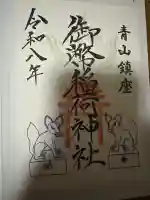 青山鎮座
御嶽稲荷神社
令和八年